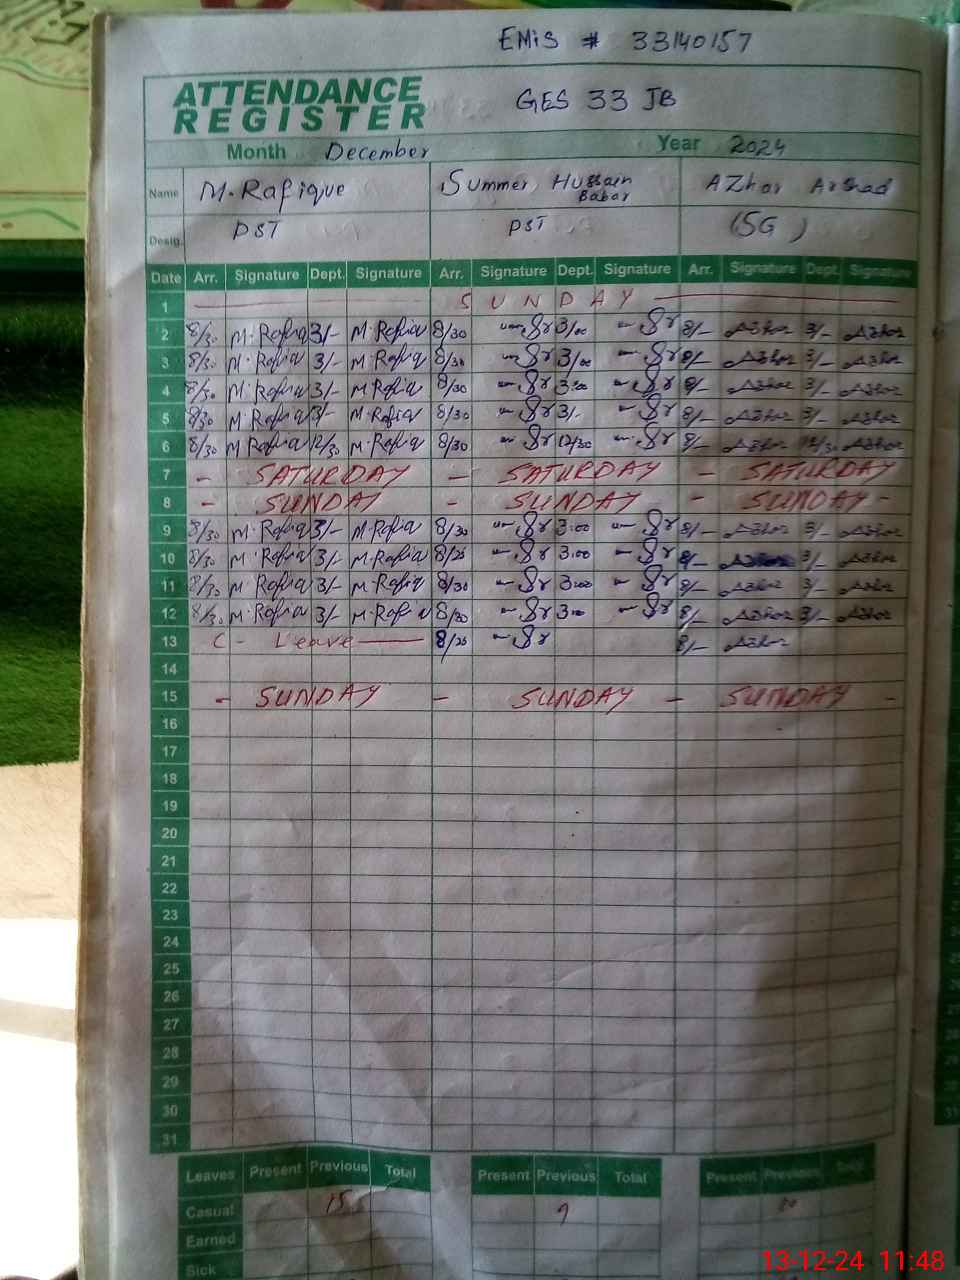 EMiS # 33140157
ATTENDANCE
REGISTER
GES 33 JB
Month December Year 2024
Name M.Rafique Summer Hussain Babar AZhar Arshad
Desig. PST PST (SG)
Date Arr. Signature Dept. Signature Arr. Signature Dept. Signature Arr. Signature Dept. Signature
1 SUNDAY
2 8/30 M.Rafiq 3/- M.Rafiq 8/30 3/00 8/- Azhar 3/- Azhar
3 8/30 M.Rafiq 3/- M.Rafiq 8/30 3/00 8/- Azhar 3/- Azhar
4 8/30 M.Rafiq 3/- M.Rafiq 8/30 3:00 8/- Azhar 3/- Azhar
5 8/30 M.Rafiq 3/- M.Rafiq 8/30 3/- 8/- Azhar 3/- Azhar
6 8/30 M Rafiq 12/30 M.Rafiq 8/30 12/30 8/- Azhar 12/30 Azhar
7 - SATURDAY - SATURDAY - SATURDAY
8 - SUNDAY - SUNDAY - SUNDAY -
9 8/30 M.Rafiq 3/- M.Rafiq 8/30 3:00 8/- Azhar 3/- Azhar
10 8/30 M.Rafiq 3/- M.Rafiq 8/25 3:00 8/- 3/- Azhar
11 8/30 M.Rafiq 3/- M.Rafiq 8/30 3:00 8/- Azhar 3/- Azhar
12 8/30 M.Rafiq 3/- M.Rafiq 8/30 3:00 8/- Azhar 3/- Azhar
13 C - Leave 8/25 8/- Azhar
14
15 - SUNDAY - SUNDAY - SUNDAY -
16
17
18
19
20
21
22
23
24
25
26
27
28
29
30
31
Leaves Present Previous Total Present Previous Total Present Previous Total
Casual 15 9
Earned
Sick
13-12-24 11:48